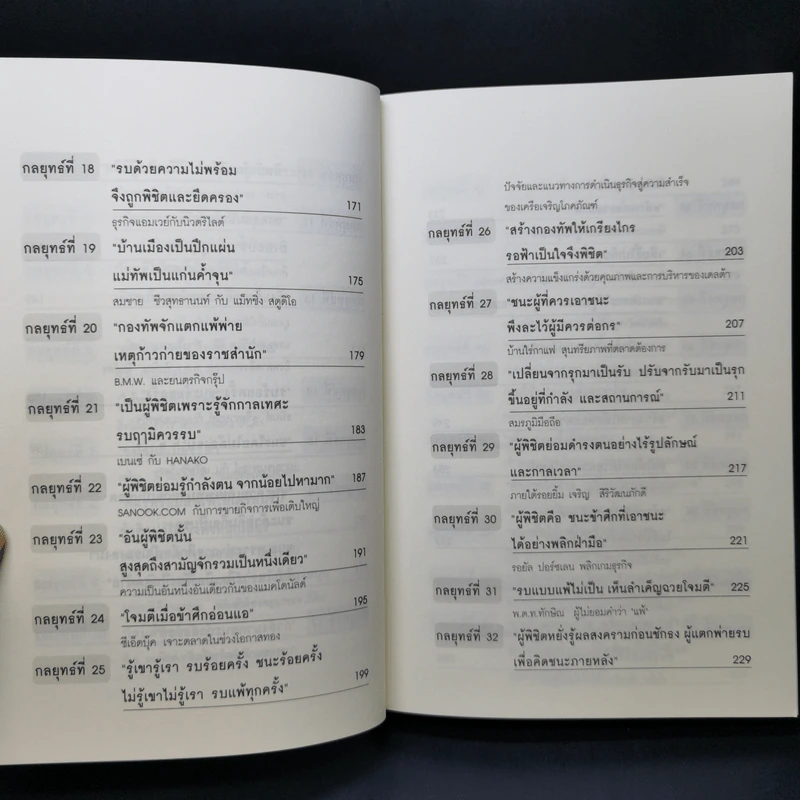 กลยุทธ์ที่ 18 "รบด้วยความไม่พร้อม
จึงถูกพิชิตและยึดครอง" 171
ธุรกิจแอมเวย์กับนิวตริไลต์
กลยุทธ์ที่ 19 "บ้านเมืองเป็นปึกแผ่น
แม่ทัพเป็นแก่นค้ำจุน" 175
สมชาย ชีวสุทธานนท์ กับ แม็ทชิ่ง สตูดิโอ
กลยุทธ์ที่ 20 "กองทัพจักแตกแพ้พ่าย
เหตุก้าวก่ายของราชสำนัก" 179
B.M.W. และยนตรกิจกรุ๊ป
กลยุทธ์ที่ 21 "เป็นผู้พิชิตเพราะรู้จักกาลเทศะ
รบฤๅมิควรรบ" 183
เบนเซ่ กับ HANAKO
กลยุทธ์ที่ 22 "ผู้พิชิตย่อมรู้กำลังตน จากน้อยไปหามาก" 187
SANOOK.COM กับการขายกิจการเพื่อเติบใหญ่
กลยุทธ์ที่ 23 "อันผู้พิชิตนั้น
สูงสุดถึงสามัญจักรวมเป็นหนึ่งเดียว" 191
ความเป็นอันหนึ่งอันเดียวกันของแมคโดนัลด์
กลยุทธ์ที่ 24 "โจมตีเมื่อข้าศึกอ่อนแอ" 195
ซีเอ็ดบุ๊ค เจาะตลาดในช่วงโอกาสทอง
กลยุทธ์ที่ 25 "รู้เขารู้เรา รบร้อยครั้ง ชนะร้อยครั้ง
ไม่รู้เขาไม่รู้เรา รบแพ้ทุกครั้ง" 199
ปัจจัยและแนวทางการดำเนินธุรกิจสู่ความสำเร็จ
ของเครือเจริญโภคภัณฑ์
กลยุทธ์ที่ 26 "สร้างกองทัพให้เกรียงไกร
รอฟ้าเป็นใจจึงพิชิต" 203
สร้างความแข็งแกร่งด้วยคุณภาพและการบริหารของเดลต้า
กลยุทธ์ที่ 27 "ชนะผู้ที่ควรเอาชนะ
พึงละไว้ผู้มีควรต่อกร" 207
บ้านไร่กาแฟ สุนทรียภาพที่ตลาดต้องการ
กลยุทธ์ที่ 28 "เปลี่ยนจากรุกมาเป็นรับ ปรับจากรับมาเป็นรุก
ขึ้นอยู่ที่กำลัง และสถานการณ์" 211
สมรภูมิมือถือ
กลยุทธ์ที่ 29 "ผู้พิชิตย่อมดำรงตนอย่างไร้รูปลักษณ์
และกาลเวลา" 217
ภายใต้รอยยิ้ม เจริญ สิริวัฒนภักดี
กลยุทธ์ที่ 30 "ผู้พิชิตคือ ชนะข้าศึกที่เอาชนะ
ได้อย่างพลิกฝ่ามือ" 221
รอยัล ปอร์ซเลน พลิกเกมธุรกิจ
กลยุทธ์ที่ 31 "รบแบบแพ้ไม่เป็น เห็นลำเค็ญฉวยโจมตี" 225
พ.ต.ท.ทักษิณ ผู้ไม่ยอมคำว่า 'แพ้'
กลยุทธ์ที่ 32 "ผู้พิชิตหยั่งรู้ผลสงครามก่อนชักธง ผู้แตกพ่ายรบ
เพื่อคิดชนะภายหลัง" 229